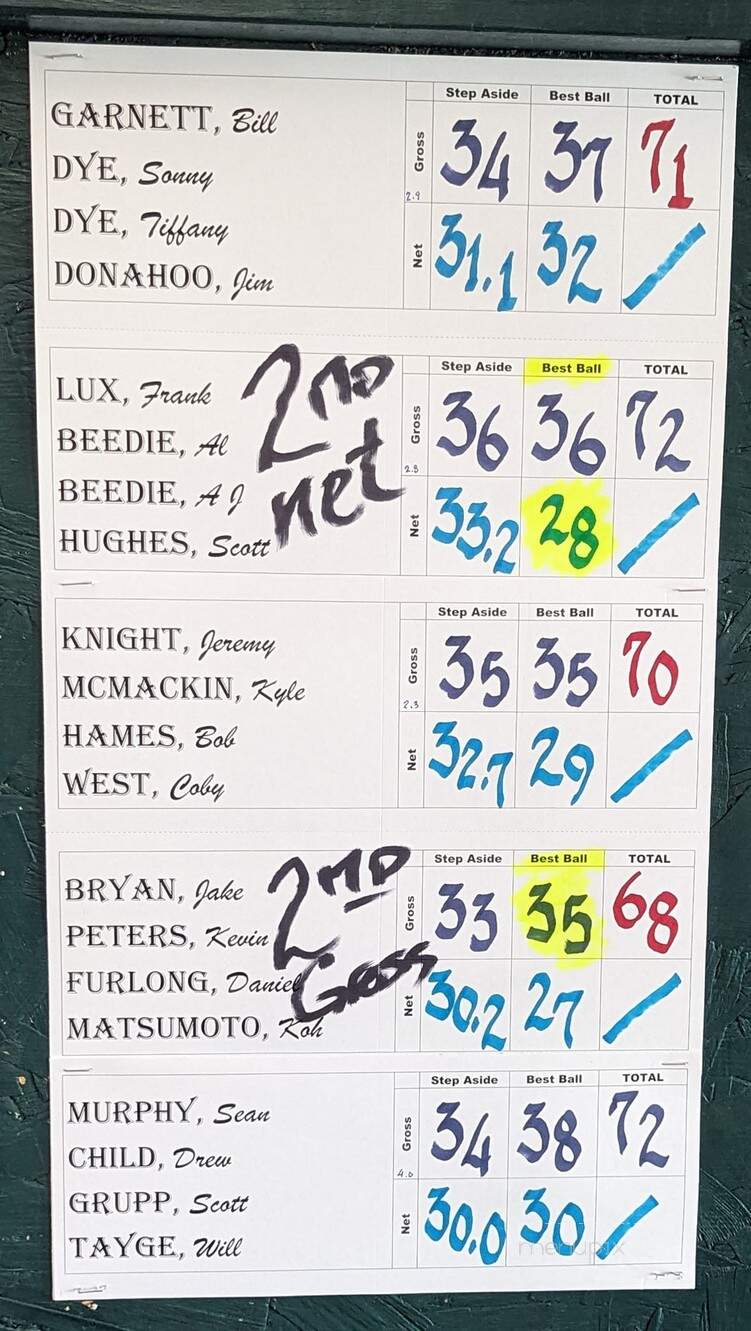 Step Aside Best Ball TOTAL
GARNETT, Bill
DYE, Sonny
DYE, Tiffany
DONAHOO, Jim
Gross 34 37 71
2.9
Net 31.1 32 /
2ND
net
Step Aside Best Ball TOTAL
LUX, Frank
BEEDIE, Al
BEEDIE, A J
HUGHES, Scott
Gross 36 36 72
2.8
Net 33.2 28 /
Step Aside Best Ball TOTAL
KNIGHT, Jeremy
MCMACKIN, Kyle
HAMES, Bob
WEST, Coby
Gross 35 35 70
2.3
Net 32.7 29 /
2ND
Gross
Step Aside Best Ball TOTAL
BRYAN, Jake
PETERS, Kevin
FURLONG, Daniel
MATSUMOTO, Koh
Gross 33 35 68
Net 30.2 27 /
Step Aside Best Ball TOTAL
MURPHY, Sean
CHILD, Drew
GRUPP, Scott
TAYGE, Will
Gross 34 38 72
4.0
Net 30.0 30 /
menupix